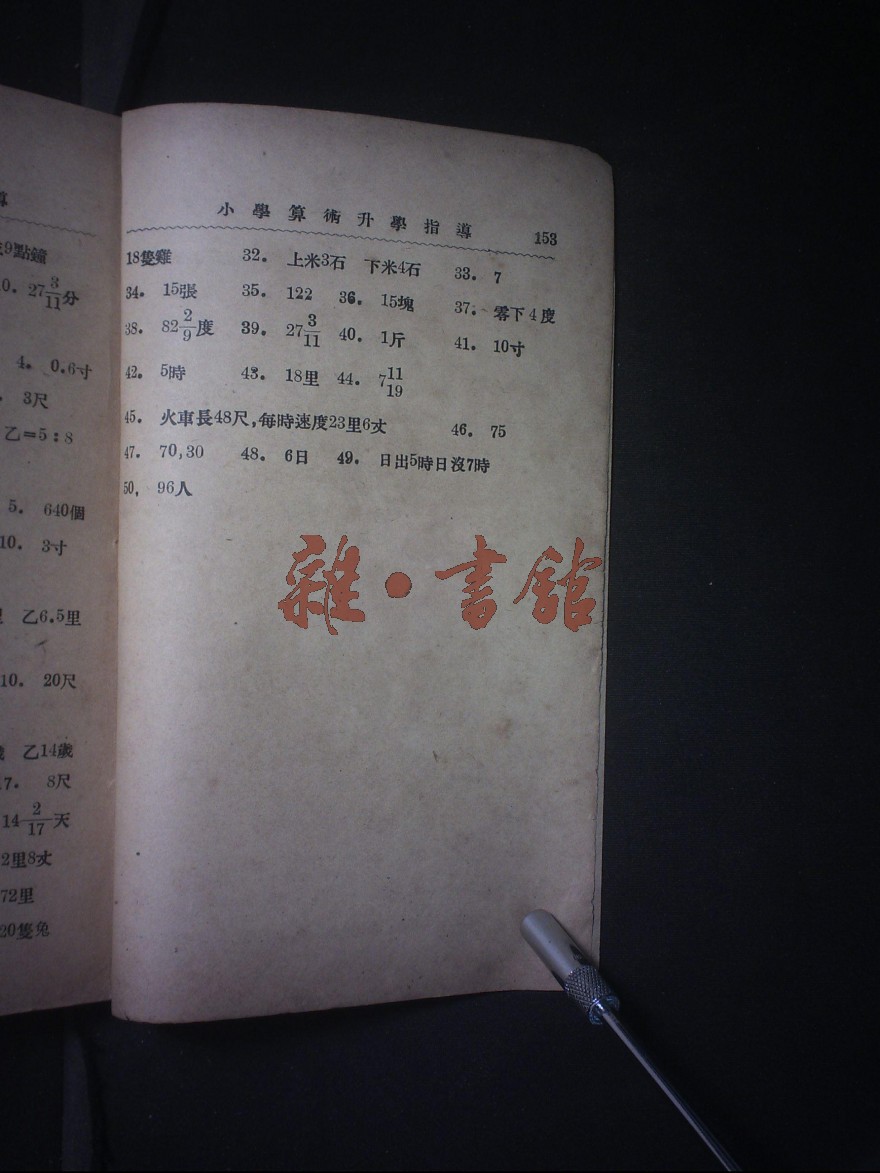 算
9點鐘
0. 27 3/11 分
4. 0.6寸
3尺
乙=5:8
5. 640個
10. 3寸
乙6.5里
10. 20尺
乙14歲
17. 8尺
14 2/17 天
2里8丈
72里
20隻兔
小學算術升學指導 153
18隻雞 32. 上米3石 下米4石 33. 7
34. 15張 35. 122 36. 15塊 37. 零下4度
38. 82 2/9 度 39. 27 3/11 40. 1斤 41. 10寸
42. 5時 43. 18里 44. 7 11/19
45. 火車長48尺,每時速度23里6丈 46. 75
47. 70,30 48. 6日 49. 日出5時日沒7時
50, 96人
雜·書館